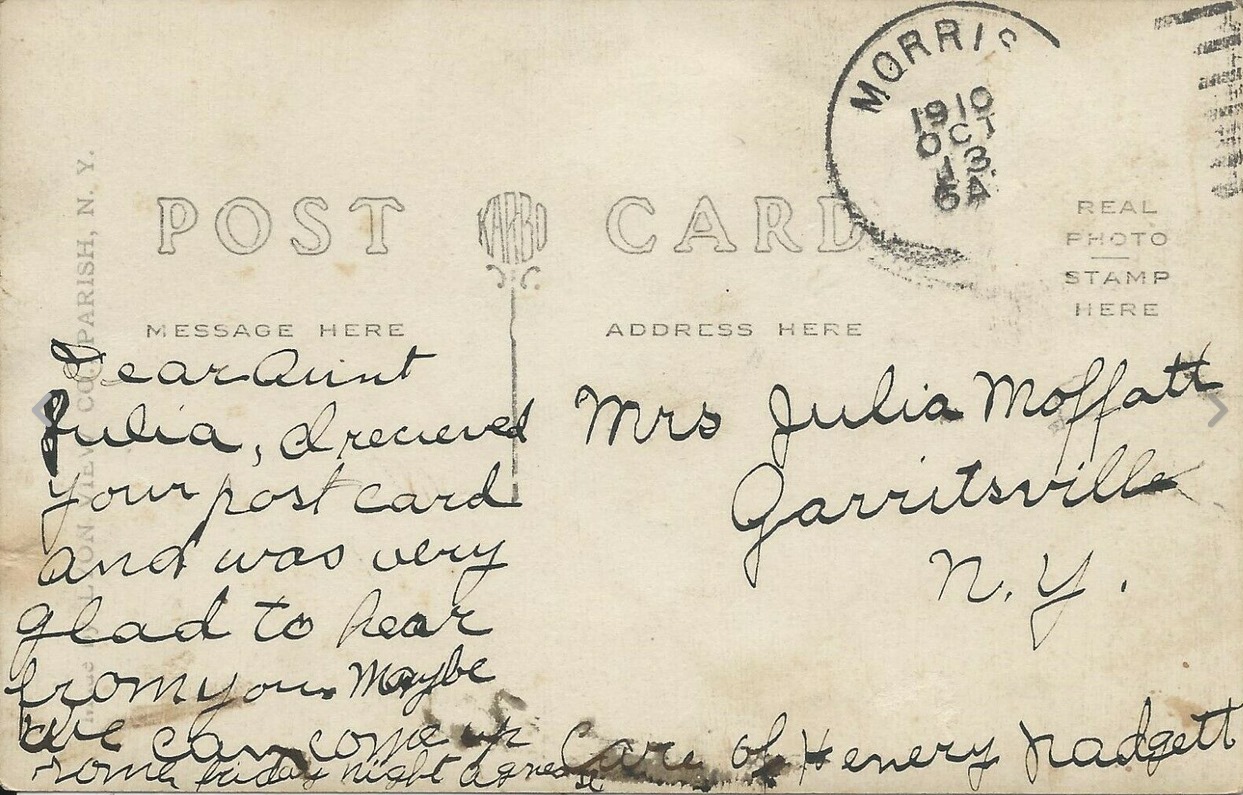 MORRIS
1910
OCT
13
6A
POST CARD
KARBO
REAL
PHOTO
STAMP
HERE
MESSAGE HERE
ADDRESS HERE
LYON VIEW CO. PARISH, N. Y.
Dear Aunt
Julia, I recieved
your post card
and was very
glad to hear
from you. Maybe
we can come up
friday night Agnes
Mrs Julia Moffatt
Garritsville
N. Y.
Care of Henery Nadgett